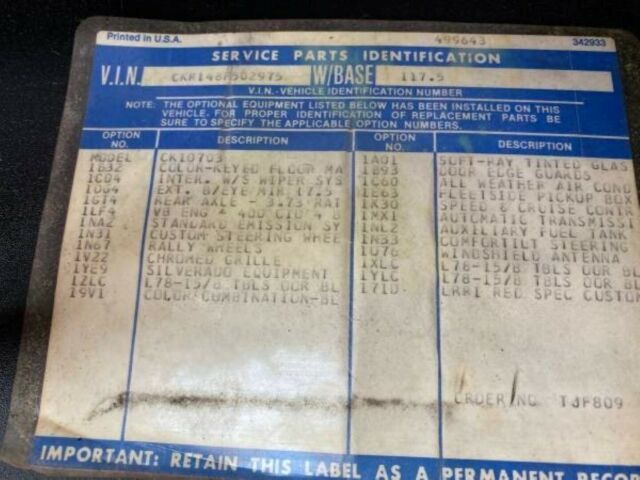 Printed in U.S.A. 499643 342933
SERVICE PARTS IDENTIFICATION
V.I.N. CKR146F502975 W/BASE 117.5
V.I.N.-VEHICLE IDENTIFICATION NUMBER
NOTE: THE OPTIONAL EQUIPMENT LISTED BELOW HAS BEEN INSTALLED ON THIS
VEHICLE. FOR PROPER IDENTIFICATION OF REPLACEMENT PARTS BE
SURE TO SPECIFY THE APPLICABLE OPTION NUMBERS.
OPTION NO. DESCRIPTION OPTION NO. DESCRIPTION
MODEL CK10703
1B32 COLOR-KEYED FLOOR MA
1CD4 INTER. W/S WIPER SYS
EXT. B/EYE MIR (7.5
1GT4 REAR AXLE - 3.73 RAT
1LF4 V8 ENG * 400 CID 4 B
1NA2 STANDARD EMISSION SY
1N31 CUSTOM STEERING WHEE
1N67 RALLY WHEELS
1V22 CHROMED GRILLE
1YE9 SILVERADO EQUIPMENT
1ZLC L78-15/B TBLS OOR BL
19V1 COLOR COMBINATION-BL
1A01 SOFT-RAY TINTED GLAS
1B93 DOOR EDGE GUARDS
1C60 ALL WEATHER AIR COND
1E63 FLEETSIDE PICKUP BOX
1K30 SPEED & CRUISE CONTR
1MX1 AUTOMATIC TRANSMISSI
1NL2 AUXILIARY FUEL TANK
1N33 COMFORTILT STEERING
1U76 WINDSHIELD ANTENNA
1XLC L78-15/B TBLS OOR BL
1YLC L78-15/B TBLS OOR BL
171D RED SPEC CUSTOM
ORDER NO TJF809
IMPORTANT: RETAIN THIS LABEL AS A PERMANENT RECOR